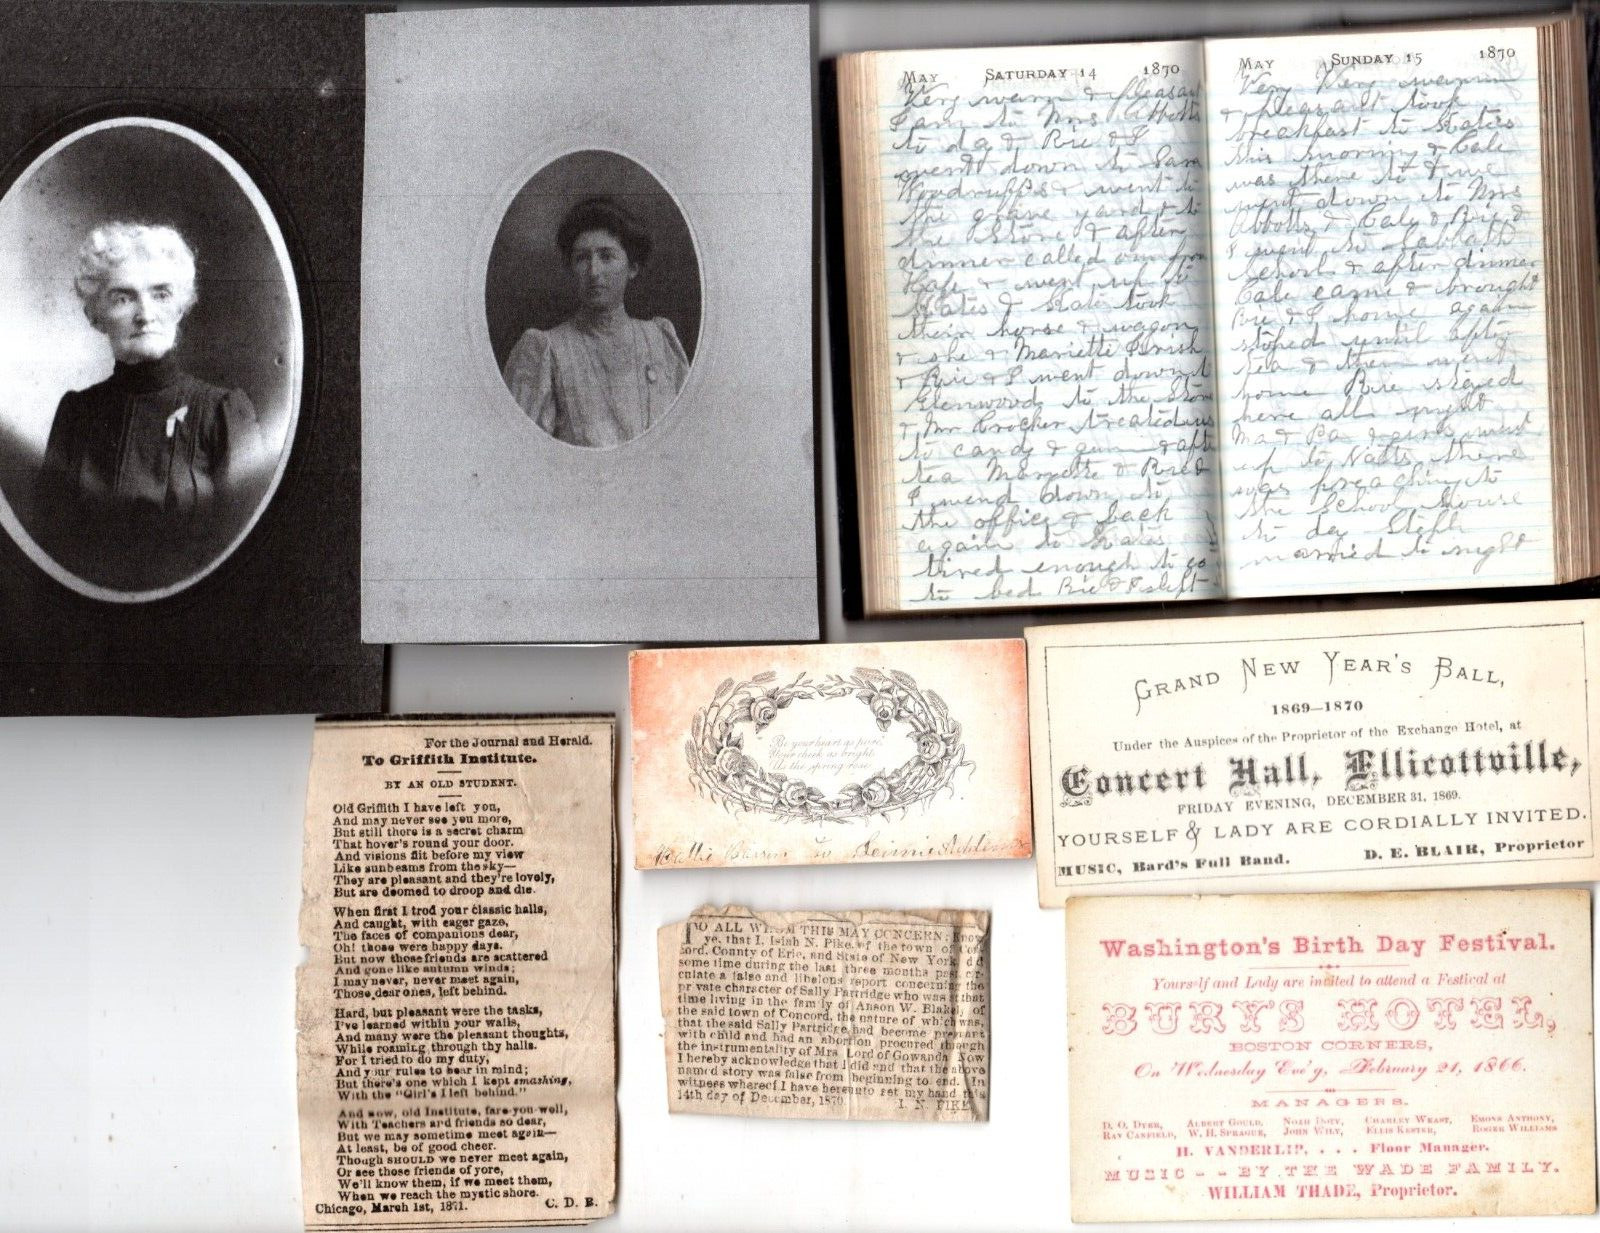 MAY SATURDAY 14 1870
Very warm & pleasant
I am to Mrs Abbotts
to day & Rie & I
went down to Sara
Woodruffs & went to
the grave yard & to
the Store & after
dinner called on from
& went up to
Kates & Kate took
their horse & wagon
& she & Mariette Parish
& Rie & I went down to
Glenwoods to the Store
& Mr Crocker treated us
to candy & gum & after
tea Maryette & Rie &
I went down to
the office & back
again to Kates
tired enough to go
to bed Rie & I slept
MAY SUNDAY 15 1870
Very Very warm
& pleasant took
breakfast to Kates
this morning & Cale
was there to & we
went down to Mrs
Abbotts & Cale & Rie &
I went to Sabbath
School & after dinner
Cale came & brought
Rie & I home again
stoped until after
tea & then went
home Rie stayed
here all night
Ma & Pa & girls went
up to Natts there
was preaching to
the School house
to day Steph
married to night
GRAND NEW YEAR'S BALL,
1869–1870
Under the Auspices of the Proprietor of the Exchange Hotel, at
Concert Hall, Ellicottville,
FRIDAY EVENING, DECEMBER 31, 1869.
YOURSELF & LADY ARE CORDIALLY INVITED.
MUSIC, Bard's Full Band. D. E. BLAIR, Proprietor
Be your heart as pure,
Your cheek as bright
As the spring rose.
to Jennie
For the Journal and Herald.
To Griffith Institute.
BY AN OLD STUDENT.
Old Griffith I have left you,
And may never see you more,
But still there is a secret charm
That hover's round your door.
And visions flit before my view
Like sunbeams from the sky—
They are pleasant and they're lovely,
But are doomed to droop and die.
When first I trod your classic halls,
And caught, with eager gaze,
The faces of companions dear,
Oh! those were happy days.
But now those friends are scattered
And gone like autumn winds;
I may never, never meet again,
Those dear ones, left behind.
Hard, but pleasant were the tasks,
I've learned within your walls,
And many were the pleasant thoughts,
While roaming through thy halls.
For I tried to do my duty,
And your rules to bear in mind;
But there's one which I kept smashing,
With the "Girl's I left behind."
And now, old Institute, fare-you-well,
With Teachers and friends so dear,
But we may sometime meet again—
At least, be of good cheer.
Though SHOULD we never meet again,
Or see those friends of yore,
We'll know them, if we meet them,
When we reach the mystic shore.
Chicago, March 1st, 1871. C. D. B.
TO ALL WHOM THIS MAY CONCERN: Know
ye, that I, Isiah N. Pike, of the town of Con-
cord, County of Erie, and State of New York, did
some time during the last three months past cir-
culate a false and libelous report concerning the
private character of Sally Partridge who was at that
time living in the family of Anson W. Blakely of
the said town of Concord, the nature of which was,
that the said Sally Partridge had become pregnant
with child and had an abortion procured through
the instrumentality of Mrs. Lord of Gowanda. Now
I hereby acknowledge that I did and that the above
named story was false from beginning to end. In
witness whereof I have hereunto set my hand this
14th day of December, 1870. I. N. PIKE
Washington's Birth Day Festival.
Yourself and Lady are invited to attend a Festival at
BURY'S HOTEL,
BOSTON CORNERS,
On Wednesday Eve'g, February 21, 1866.
MANAGERS.
D. O. DYER, ALBERT GOULD, NOAH DOTY, CHARLEY WEAST, EMONS ANTHONY,
RAY CANFIELD, W. H. SPRAGUE, JOHN WILY, ELLIS KESTER, ROGER WILLIAMS
H. VANDERLIP, . . . Floor Manager.
MUSIC - - BY THE WADE FAMILY.
WILLIAM THADE, Proprietor.